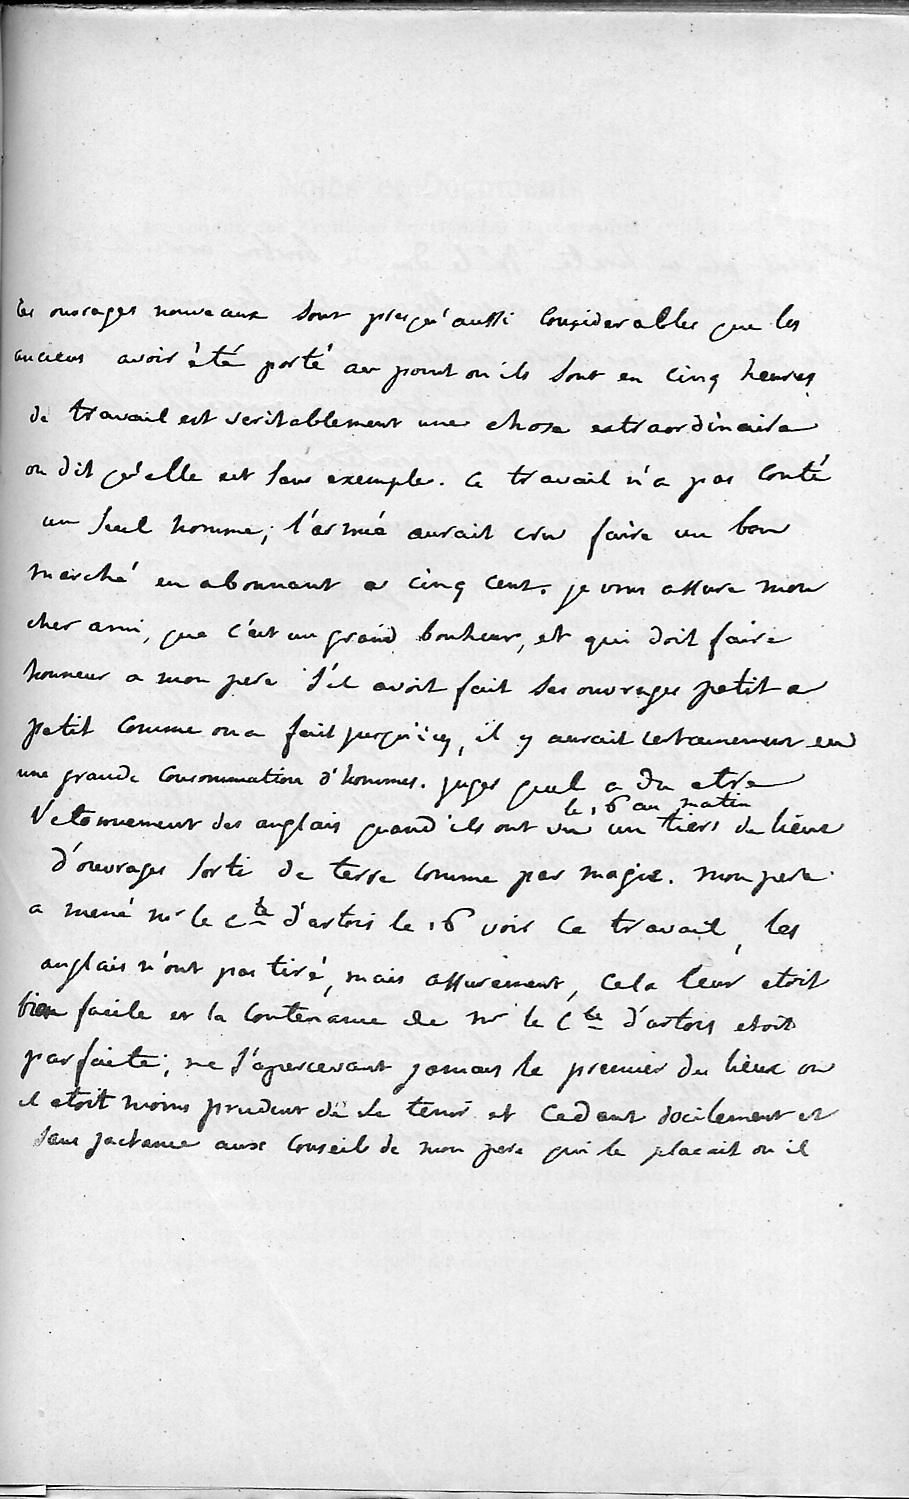 les ouvrages nouveaux sont presqu'aussi considerables que les
anciens avoir été porté au point ou ils sont en cinq heures
de travail est veritablement une chose extraordinaire
on dit qu'elle est sans exemple. ce travail n'a pas couté
un seul homme; l'armée aurait cru faire un bon
marché en abonnant a cinq cent. je vous assure mon
cher ami, que c'est un grand bonheur, et qui doit faire
honneur a mon pere s'il avoit fait ses ouvrages petit a
petit comme on a fait jusqu'icy, il y aurait certainement eu
une grande consommation d'hommes. jugés quel a du etre
le 16 au matin
l'etonnement des anglais quand ils ont vu un tiers de lieue
d'ouvrages sorti de terre comme par magie. mon pere
a mené mr le cte d'artois le 16 voir ce travail, les
anglais n'ont pas tiré, mais assurement, cela leur etoit
bien facile et la contenance de mr le cte d'artois etoit
parfaite; ne s'apercevant jamais le premier du lieux ou
il etoit moins prudent de se tenir et cedant docilement et
sans jactance aux conseils de mon pere qui le placait ou il